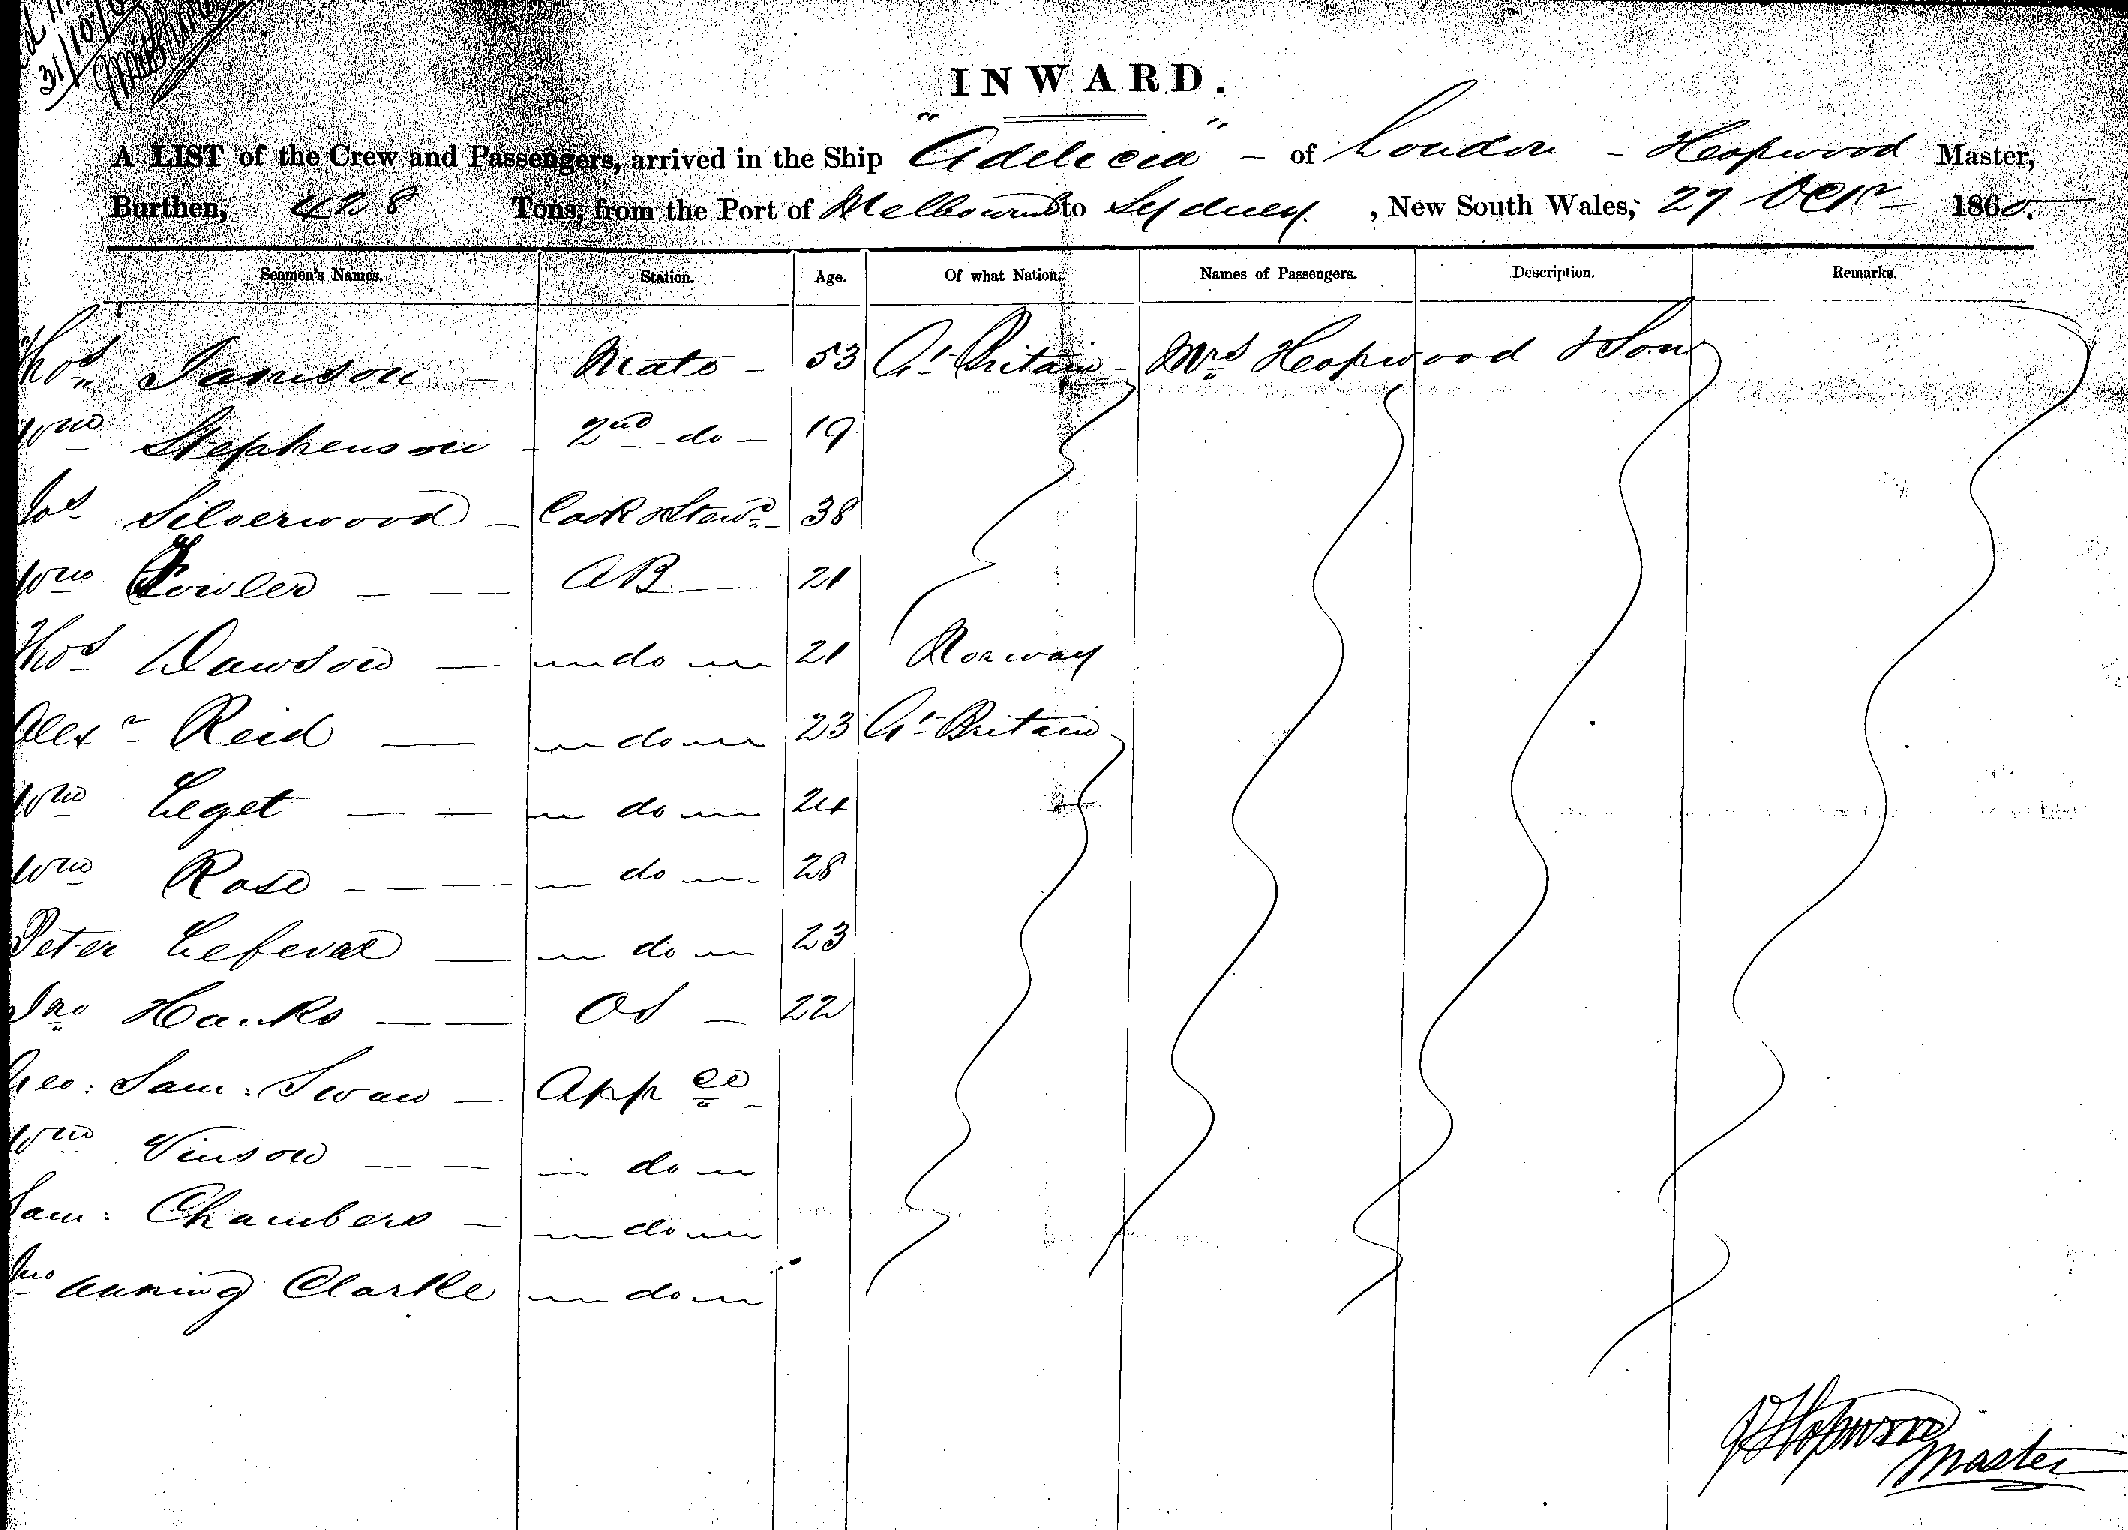 31/10/6
INWARD.
A LIST of the Crew and Passengers, arrived in the Ship "Adelicia" - of London - Hopwood Master,
Burthen, 428 Tons, from the Port of Melbourne to Sydney, New South Wales, 29 Octr 1860.
Seamen's Names. Station. Age. Of what Nation. Names of Passengers. Description. Remarks.
Thos Jamison - Mate - 53 Gt Britain - Mrs Hopwood & Son
Wm Stephenson - 2nd do - 19
Jos Silverwood - Cook & Stewd - 38
Wm Fowler - - - AB - 21
Thos Dawson - do 21 Norway
Alexr Reid - do 23 Gt Britain
Wm Leget - - do 24
Wm Rose - - - do 28
Peter Lefevre - do 23
Jno Hanks - - OS - 22
Geo: Sam: Swan - Appce -
Wm Vinson - - do
Sam: Chambers - do
Jno Anning Clarke do
J Hopwood
Master